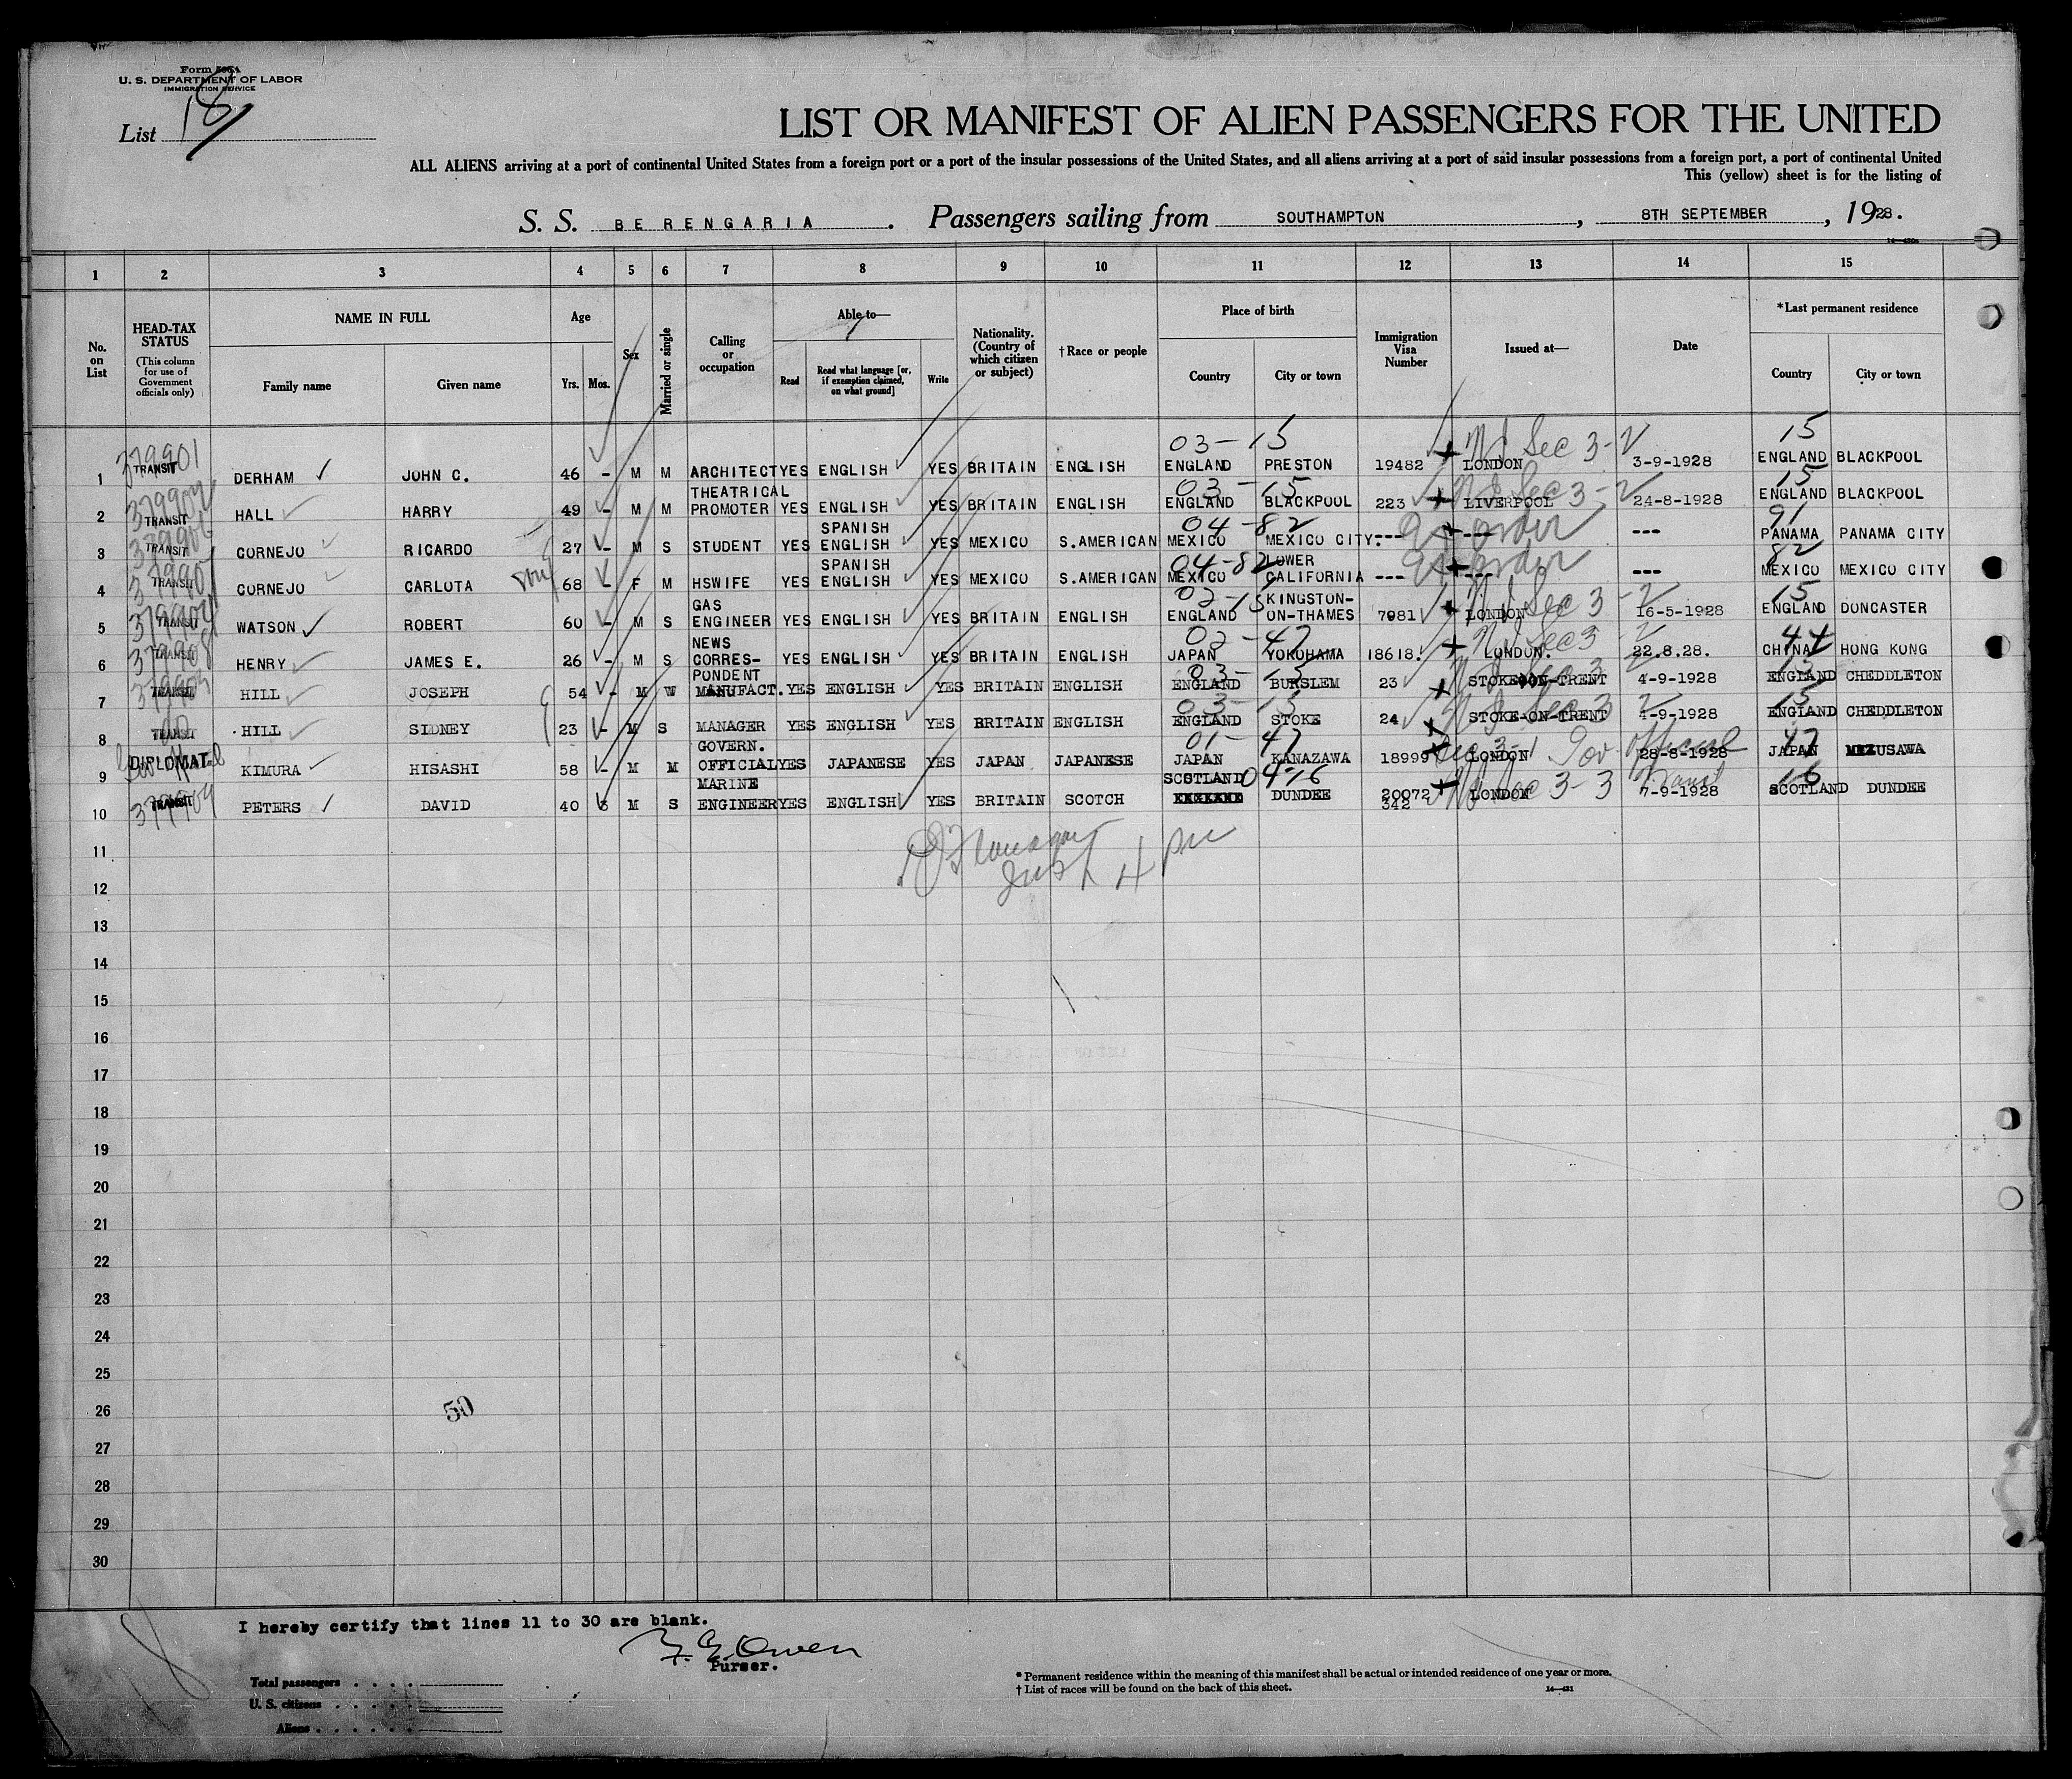 Form 500A
U. S. DEPARTMENT OF LABOR
IMMIGRATION SERVICE
List 18
LIST OR MANIFEST OF ALIEN PASSENGERS FOR THE UNITED
ALL ALIENS arriving at a port of continental United States from a foreign port or a port of the insular possessions of the United States, and all aliens arriving at a port of said insular possessions from a foreign port, a port of continental United
This (yellow) sheet is for the listing of
S. S. BERENGARIA. Passengers sailing from SOUTHAMPTON, 8TH SEPTEMBER, 1928.
1 2 3 4 5 6 7 8 9 10 11 12 13 14 15
No. on List
HEAD-TAX STATUS (This column for use of Government officials only)
NAME IN FULL
Family name Given name
Age
Yrs. Mos.
Sex
Married or single
Calling or occupation
Able to—
Read Read what language [or, if exemption claimed, on what ground] Write
Nationality. (Country of which citizen or subject)
†Race or people
Place of birth
Country City or town
Immigration Visa Number
Issued at—
Date
*Last permanent residence
Country City or town
379901 03-15 NI Sec 3-2 15
1 TRANSIT DERHAM JOHN C. 46 - M M ARCHITECT YES ENGLISH YES BRITAIN ENGLISH ENGLAND PRESTON 19482 LONDON 3-9-1928 ENGLAND BLACKPOOL
03-15 Sec 3-2 15
2 TRANSIT HALL HARRY 49 - M M THEATRICAL PROMOTER YES ENGLISH YES BRITAIN ENGLISH ENGLAND BLACKPOOL 223 LIVERPOOL 24-8-1928 ENGLAND BLACKPOOL
04-82 order 91
3 TRANSIT CORNEJO RICARDO 27 - M S STUDENT YES SPANISH ENGLISH YES MEXICO S.AMERICAN MEXICO MEXICO CITY. --- --- --- PANAMA PANAMA CITY
04-82 order 82
4 TRANSIT CORNEJO CARLOTA 68 - F M HSWIFE YES SPANISH ENGLISH YES MEXICO S.AMERICAN MEXICO LOWER CALIFORNIA --- --- --- MEXICO MEXICO CITY
02-15 Sec 3-2 15
5 TRANSIT WATSON ROBERT 60 - M S GAS ENGINEER YES ENGLISH YES BRITAIN ENGLISH ENGLAND KINGSTON-ON-THAMES 7981 LONDON 16-5-1928 ENGLAND DONCASTER
02-47 Sec 3-2 44
6 TRANSIT HENRY JAMES E. 26 - M S NEWS CORRES-PONDENT YES ENGLISH YES BRITAIN ENGLISH JAPAN YOKOHAMA 18618. LONDON. 22.8.28. CHINA HONG KONG
03-15 Sec 3-2 15
7 TRANSIT HILL JOSEPH 54 - M W MANUFACT. YES ENGLISH YES BRITAIN ENGLISH ENGLAND BURSLEM 23 STOKE-ON-TRENT 4-9-1928 ENGLAND CHEDDLETON
03-15 Sec 3-2 15
8 TRANSIT HILL SIDNEY 23 - M S MANAGER YES ENGLISH YES BRITAIN ENGLISH ENGLAND STOKE 24 STOKE-ON-TRENT 4-9-1928 ENGLAND CHEDDLETON
01-47 Sec 3-1 Gov official 47
9 DIPLOMAT KIMURA HISASHI 58 - M M GOVERN. OFFICIAL YES JAPANESE YES JAPAN JAPANESE JAPAN KANAZAWA 18999 LONDON 28-8-1928 JAPAN MIZUSAWA
04-16 Sec 3-3 Transit 16
10 TRANSIT PETERS DAVID 40 3 M S MARINE ENGINEER YES ENGLISH YES BRITAIN SCOTCH SCOTLAND DUNDEE 20072 342 LONDON 7-9-1928 SCOTLAND DUNDEE
11
12
13
14
15
16
17
18
19
20
21
22
23
24
25
26
50
27
28
29
30
I hereby certify that lines 11 to 30 are blank.
F. G. Owen
Purser.
Total passengers
U. S. citizens
Aliens
* Permanent residence within the meaning of this manifest shall be actual or intended residence of one year or more.
† List of races will be found on the back of this sheet.
14—431